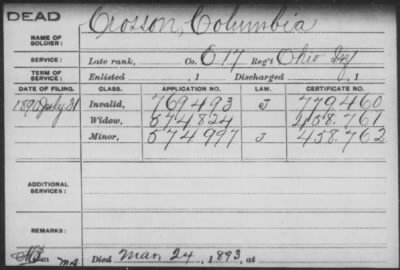 DEAD
Crosson, Columbia
NAME OF SOLDIER:
SERVICE: Late rank, Co. C, 17 Reg't Ohio Inf
TERM OF SERVICE: Enlisted , 1 Discharged , 1
DATE OF FILING. CLASS. APPLICATION NO. LAW. CERTIFICATE NO.
1890 July 31 Invalid, 769493 J 779460
Widow, 574824 458.761
Minor, 574997 J 458.762
ADDITIONAL SERVICES:
REMARKS:
Died Mar. 24, 1893, at